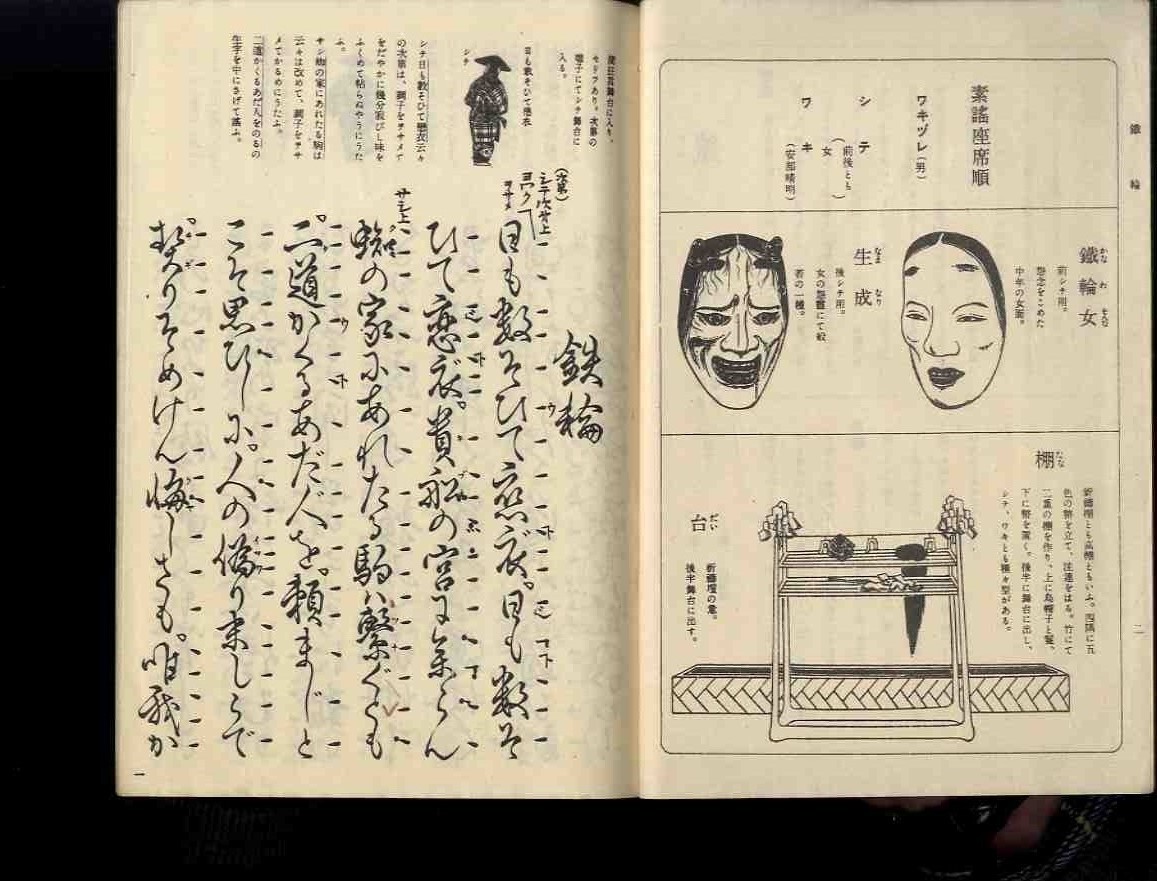 鐵輪
二
素謠座席順
ワキヅレ（男）
シテ（前後とも女）
ワキ（安部晴明）
鐵輪女
かなわをんな
前シテ用。
怨念をこめた
中年の女面。
生成
なまなり
後シテ用。
女の怨靈にて般
若の一種。
棚
たな
祈禱棚とも高棚ともいふ。四隅に五
色の幣を立て、注連をはる。竹にて
二重の棚を作り、上に烏帽子と鬘、
下に幣を置く。後半に舞台に出し、
シテ、ワキとも種々型がある。
台
だい
祈禱壇の意。
後半舞台に出す。
セリフあり。次第の
囃子にてシテ舞台に
入る。
日も數そひて戀衣
シテ
シテ日も數そひて戀衣云々
の次第は、調子をヲサメて
をだやかに幾分寂びし味を
ふくめて粘らぬやうにうた
ふ。
サシ蜘の家にあれたる駒は
云々は改めて、調子をヲサ
メてかるめにうたふ。
二道かくるあだ人をのるの
生字を中にさげて謠ふ。
鉄輪
（次第）
シテ次第上
ヨワク
ヲサメ
日も數そひて恋衣。日も數そ
ひて恋衣。貴船の宮に参らん
サシ上
蜘の家にあれたる駒ハ繋ぐとも
二道かくるあだ人を。頼まじと
こそ思ひしに。人の偽り末しらで
契りそめけん悔しさも。唯我か
一